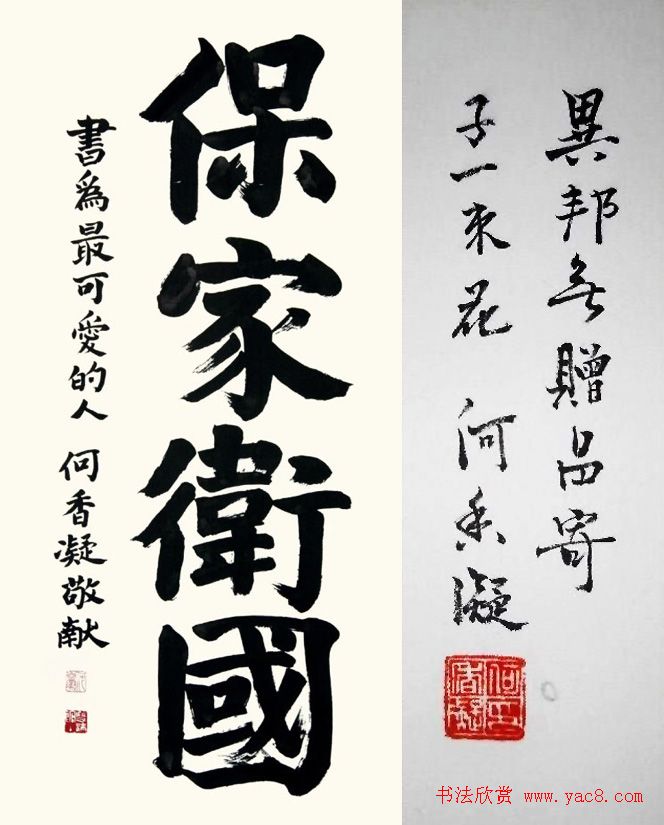 保家衛國
書爲最可愛的人 何香凝敬献
異邦無贈品寄
子一束花 何香凝
何印
香凝
书法欣赏 www.yac8.com